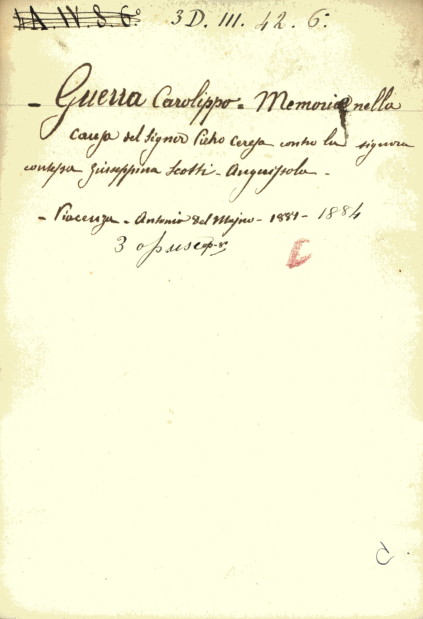 A IV. 8. 6° 3 D. III. 42. 6.
- Guerra Carolippo - Memoria nella
causa del Signor Pietro Ceresa contro la signora
contessa Giuseppina Scotti - Anguissola -
- Piacenza - Antonio Del Majno - 1881 - 1884
3 opusc
C